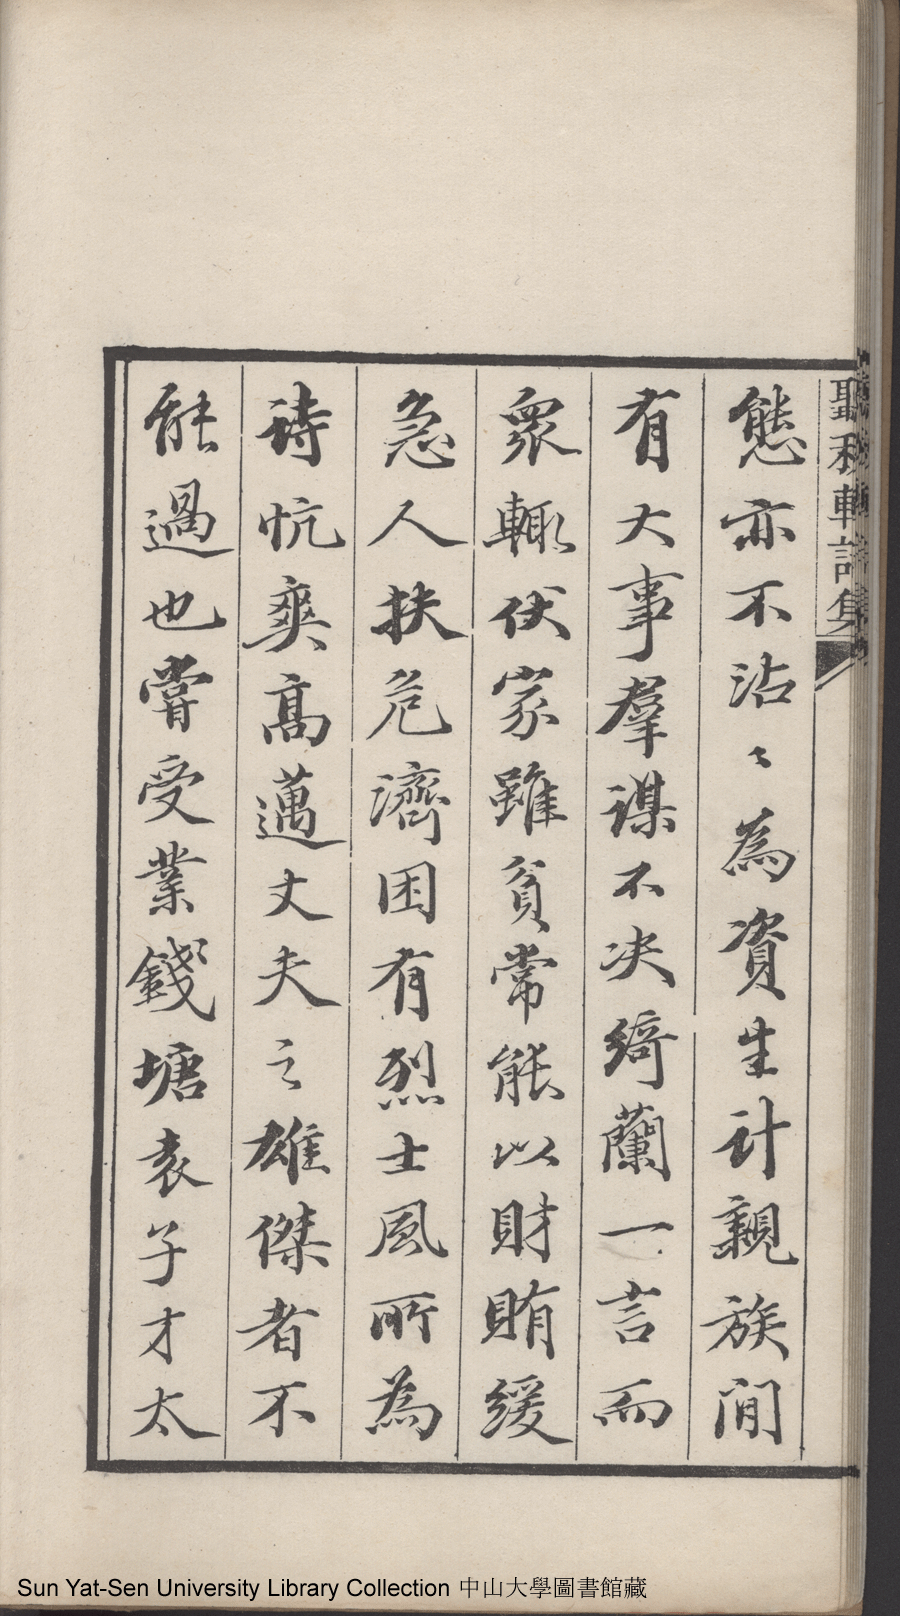 聽秋軒詩集
態亦不沾〻為資生計親族間
有大事羣謀不决綺蘭一言而
衆輒伏家雖貧常能以財賄緩
急人扶危濟困有烈士風所為
詩忼爽髙邁丈夫之雄傑者不
能過也甞受業錢塘袁子才太
Sun Yat-Sen University Library Collection 中山大學圖書館藏